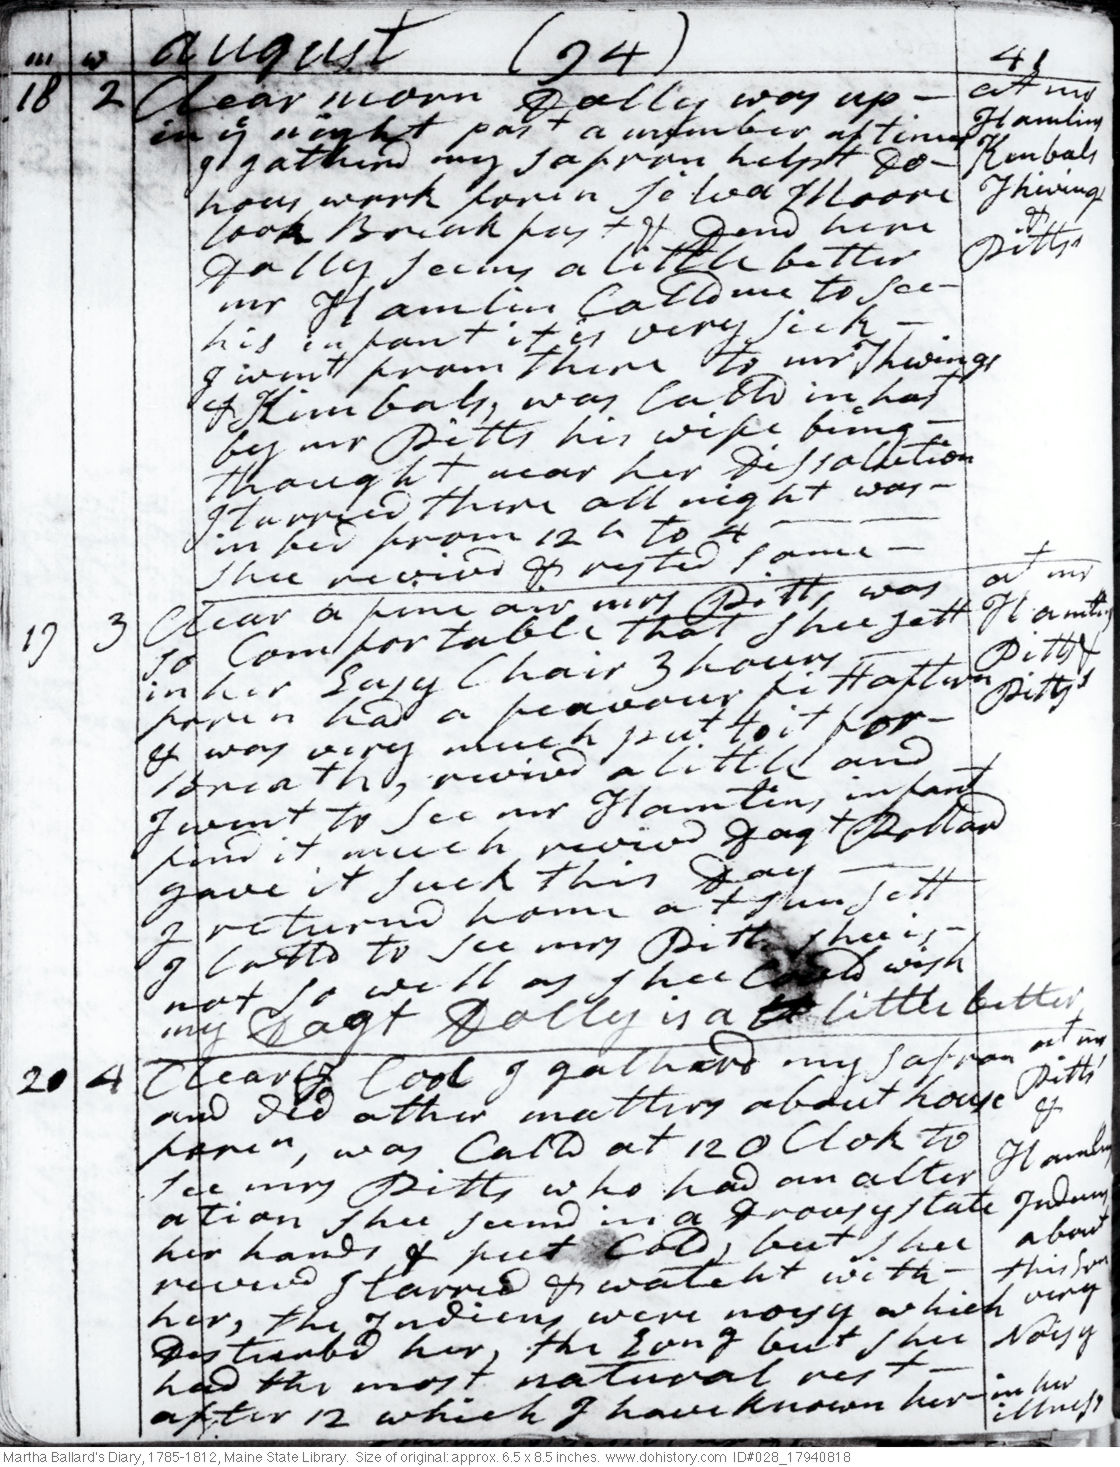 m w august (94) 41
18 2 Clear morn Dolly was up - at mr
in ye night past a number of times Hamlins
I gatherd my safron helpt Do - Kimbals
hous work foren Selvd Moore Thwings
took Breakfast & Dend here &
Dolly seems a little better Pitts's
mr Hamlin Calld me to see -
his infant it is very sick -
I went from there to mr Thwings
& Kimbals, was Calld in hast
by mr Pitts his wife being -
thought near her Dissolution
I tarried there all night was -
in bed from 12 h to 4
shee revivd & rested some -
19 3 Clear a fine air mrs Pitts was at mr
so Comfortable that shee sett Hamlins
in her Easy Chair 3 hours Pitts &
foren had a feavour fitt aftern Pitts's
& was very much put to it for -
breath, revivd a little and
I went to see mr Hamlins infant
find it much revivd Dagt Pollard
gave it suck this Day
I returnd home at sun sett
I Calld to see mrs Pitts shee is -
not so well as shee Could wish
my Dagt Dolly is a little better
20 4 Clear & Cool I gatherd my safron at mr
and did other matters about house Pitts'
foren, was Calld at 12 O Clok to &
see mrs Pitts who had an alter Hamlins
ation shee seemd in a Drousy state Indiens
her hands & feet Cold, but shee about
revivd I tarred & watcht with - this Eve
her, the Indiens were noisy which very
Desturbd her, the Eong but shee Noisy
had the most natural rest - in her
after 12 which I have known her - illness